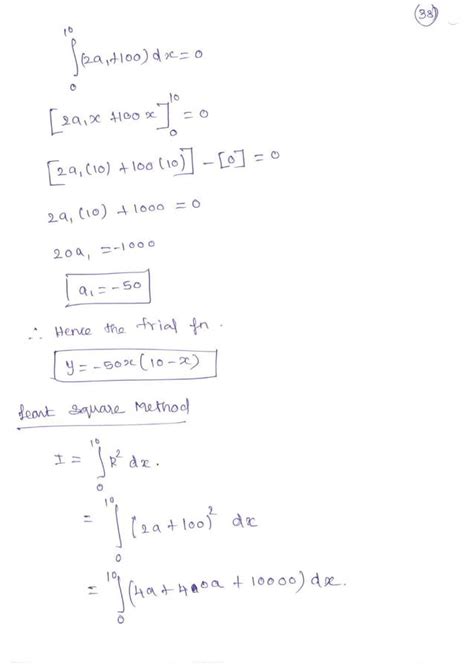 38
∫₀¹⁰ (2a₁+100) dx = 0
[2a₁x +100x]₀¹⁰ = 0
[2a₁(10) + 100(10)] - [0] = 0
2a₁(10) + 1000 = 0
20a₁ = -1000
a₁ = -50
∴ Hence the trial fn.
y = -50x(10-x)
Least Square Method
I = ∫₀¹⁰ R² dx.
= ∫₀¹⁰ (2a+100)² dx
= ∫₀¹⁰ (4a+400a + 10000) dx.